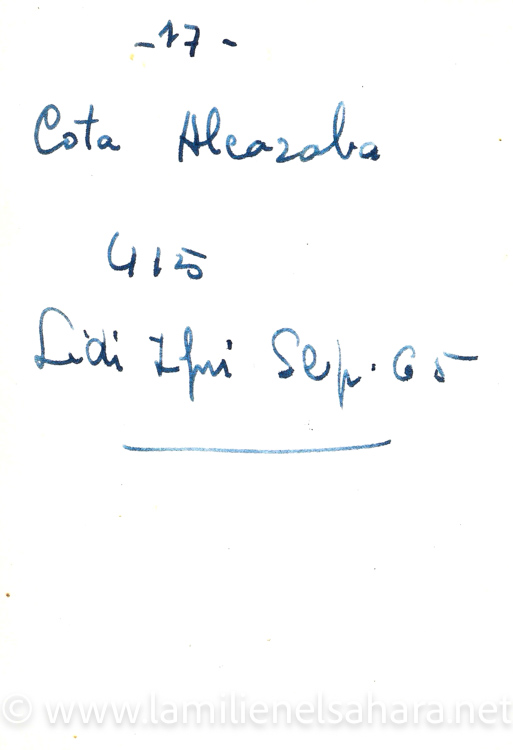 -17-
Cota Alcazaba
415
Sidi Ifni Sep. 65
© www.lamilienelsahara.net